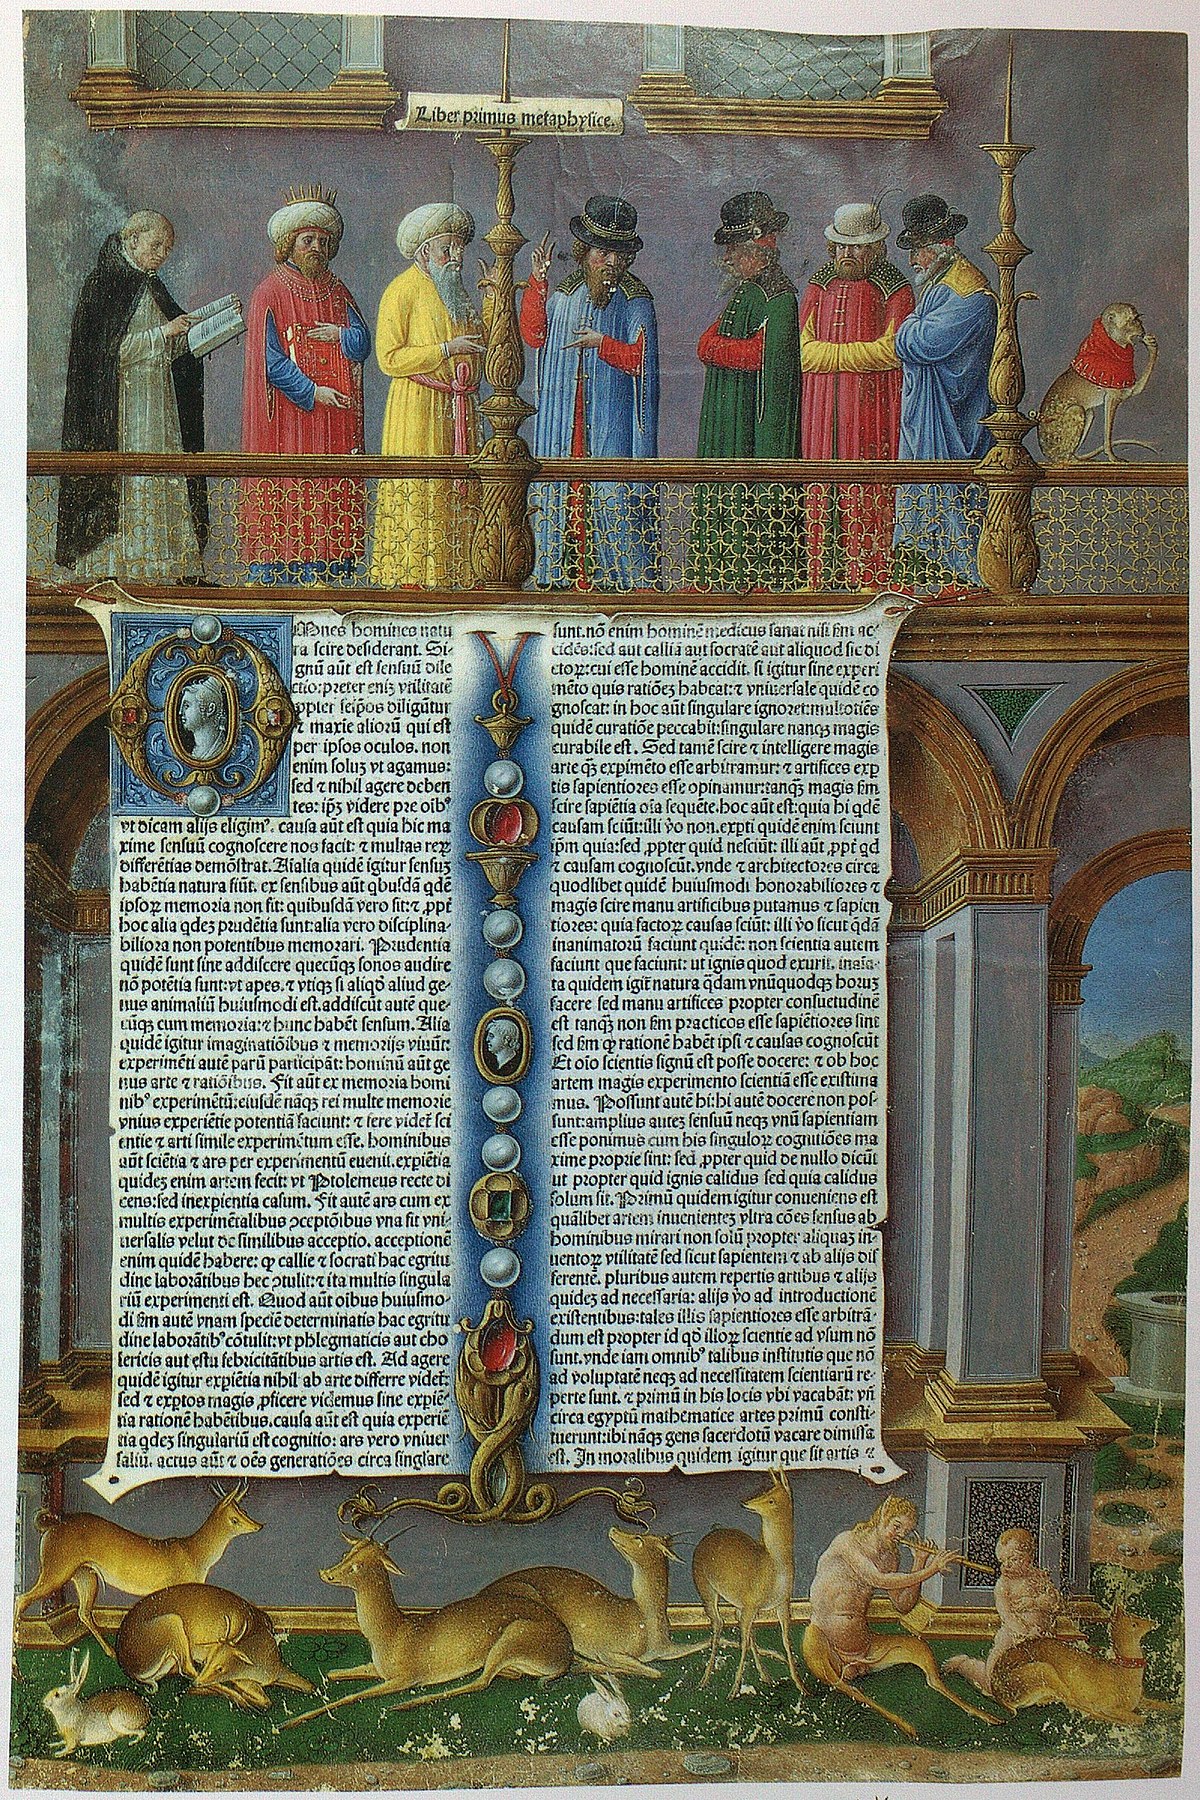 Liber primus metaphysice.
Omnes homines natu
ra scire desiderant. Si-
gnū aūt est sensuū dile
ctio: preter eniȝ vtilitatē
ꝓpter seipsos diligūtur
⁊ maxīe aliorū qui est
per ipsos oculos. non
enim soluȝ vt agamus:
sed ⁊ nihil agere deben
tes: ipȝ videre pre oībꝰ
vt dicam alijs eligimꝰ. causa aūt est quia hic ma
xime sensuū cognoscere nos facit: ⁊ multas reꝝ
differētias demōstrat. Aīalia quidē igitur sensuȝ
habētia natura fiūt. ex sensibus aūt qbusdā qdē
ipsoꝝ memoria non fit: quibusdā vero fit: ⁊ ꝓpt̄
hoc alia qdeȝ prudētia sunt: alia vero disciplina-
biliora non potentibus memorari. Prudentia
quidē sunt sine addiscere quecūqȝ sonos audire
nō potētia sunt: vt apes. ⁊ vtiqȝ si aliqđ aliud ge-
nus animaliū huiusmodi est. addiscūt autē que-
cūqȝ cum memoria: ⁊ hunc habēt sensum. Alia
quidē igitur imaginatiōibus ⁊ memorijs viuūt:
experimēti autē parū participāt: hominū aūt ge-
nus arte ⁊ ratiōibus. Fit aūt ex memoria homi
nibꝰ experimētū: eiusdē nāqȝ rei multe memorie
vnius experiētie potentiā faciunt: ⁊ fere videt̄ sci
entie ⁊ arti simile experimētum esse. hominibus
aūt sciētia ⁊ ars per experimentū euenit. expiētia
quideȝ enim artem fecit: vt Ptolemeus recte di
cens: sed inexpientia casum. Fit autē ars cum ex
multis experimētalibus ↄceptōibus vna fit vni-
uersalis velut de similibus acceptio. acceptionē
enim quidē habere: ꝙ callie ⁊ socrati hac egritu
dine laborātibus hec ↄtulit: ⁊ ita multis singula
riū experimenti est. Quod aūt oībus huiusmo-
di sm̄ autē vnam speciē determinatis hac egritu
dine laborātibꝰ cōtulit: vt phlegmaticis aut cho
lericis aut estu febricitātibus artis est. Ad agere
quidē igitur expiētia nihil ab arte differre videt̄:
sed ⁊ exptos magis ꝓficere videmus sine expiē-
tia rationē habētibus. causa aūt est quia experiē
tia qdeȝ singulariū est cognitio: ars vero vniuer
saliū. actus aūt ⁊ oēs generatiōes circa singlare
sunt. nō enim hominē medicus sanat nisi sm̄ ac-
cidēs: sed aut calliā aut socratē aut aliquod sic di
ctoꝝ: cui esse hominē accidit. si igitur sine experi
mēto quis ratiōeȝ habeat: ⁊ vniuersale quidē co
gnoscat: in hoc aūt singulare ignoret: multotiēs
quidē curatiōe peccabit: singulare nanqȝ magis
curabile est. Sed tamē scire ⁊ intelligere magis
arte qȝ expimēto esse arbitramur: ⁊ artifices exp
tis sapientiores esse opinamur: tanqȝ magis sm̄
scire sapiētia oīa sequēte. hoc aūt est: quia hi qdē
causam sciūt: illi ꝟo non. expti quidē enim sciunt
ipm quia: sed ꝓpter quid nesciūt: illi aūt ꝓpt̄ qd
⁊ causam cognoscūt. vnde ⁊ architectores circa
quodlibet quidē huiusmodi honorabiliores ⁊
magis scire manu artificibus putamus ⁊ sapien
tiores: quia factoꝝ causas sciūt: illi ꝟo sicut qdā
inanimatorū faciunt quidē: non scientia autem
faciunt que faciunt: ut ignis quod exurit. inaīa-
ta quidem igit̄ natura qdam vnūquodqȝ horuȝ
facere sed manu artifices propter consuetudinē
est tanqȝ non sm̄ practicos esse sapiētiores sint
sed sm̄ ꝙ rationē habēt ipsi ⁊ causas cognoscūt
Et oīo scientis signū est posse docere: ⁊ ob hoc
artem magis experimento scientiā esse existima
mus. Possunt autē hi: hi autē docere non pos-
sunt: amplius autez sensuū neqȝ vnū sapientiam
esse ponimus cum his singuloꝝ cognitiōes ma
xime proprie sint: sed ꝓpter quid de nullo dicūt
ut propter quid ignis calidus sed quia calidus
solum sit. Primū quidem igitur conueniens est
quālibet artem inuenienteȝ vltra cōes sensus ab
hominibus mirari non solū propter aliquaȝ in-
uentoꝝ vtilitatē sed sicut sapientem ⁊ ab alijs dif
ferentē. pluribus autem repertis artibus ⁊ alijs
quideȝ ad necessaria: alijs ꝟo ad introductionē
existentibus: tales illis sapientiores esse arbitrā
dum est propter id qđ illoꝝ scientie ad vsum nō
sunt. vnde iam omnibꝰ talibus institutis que nō
ad voluptatē neqȝ ad necessitatem scientiarū re-
perte sunt. ⁊ primū in his locis vbi vacabāt: vn̄
circa egyptū mathematice artes primū consti-
tuerunt: ibi nāqȝ gens sacerdotū vacare dimissa
est. In moralibus quidem igitur que sit artis ⁊